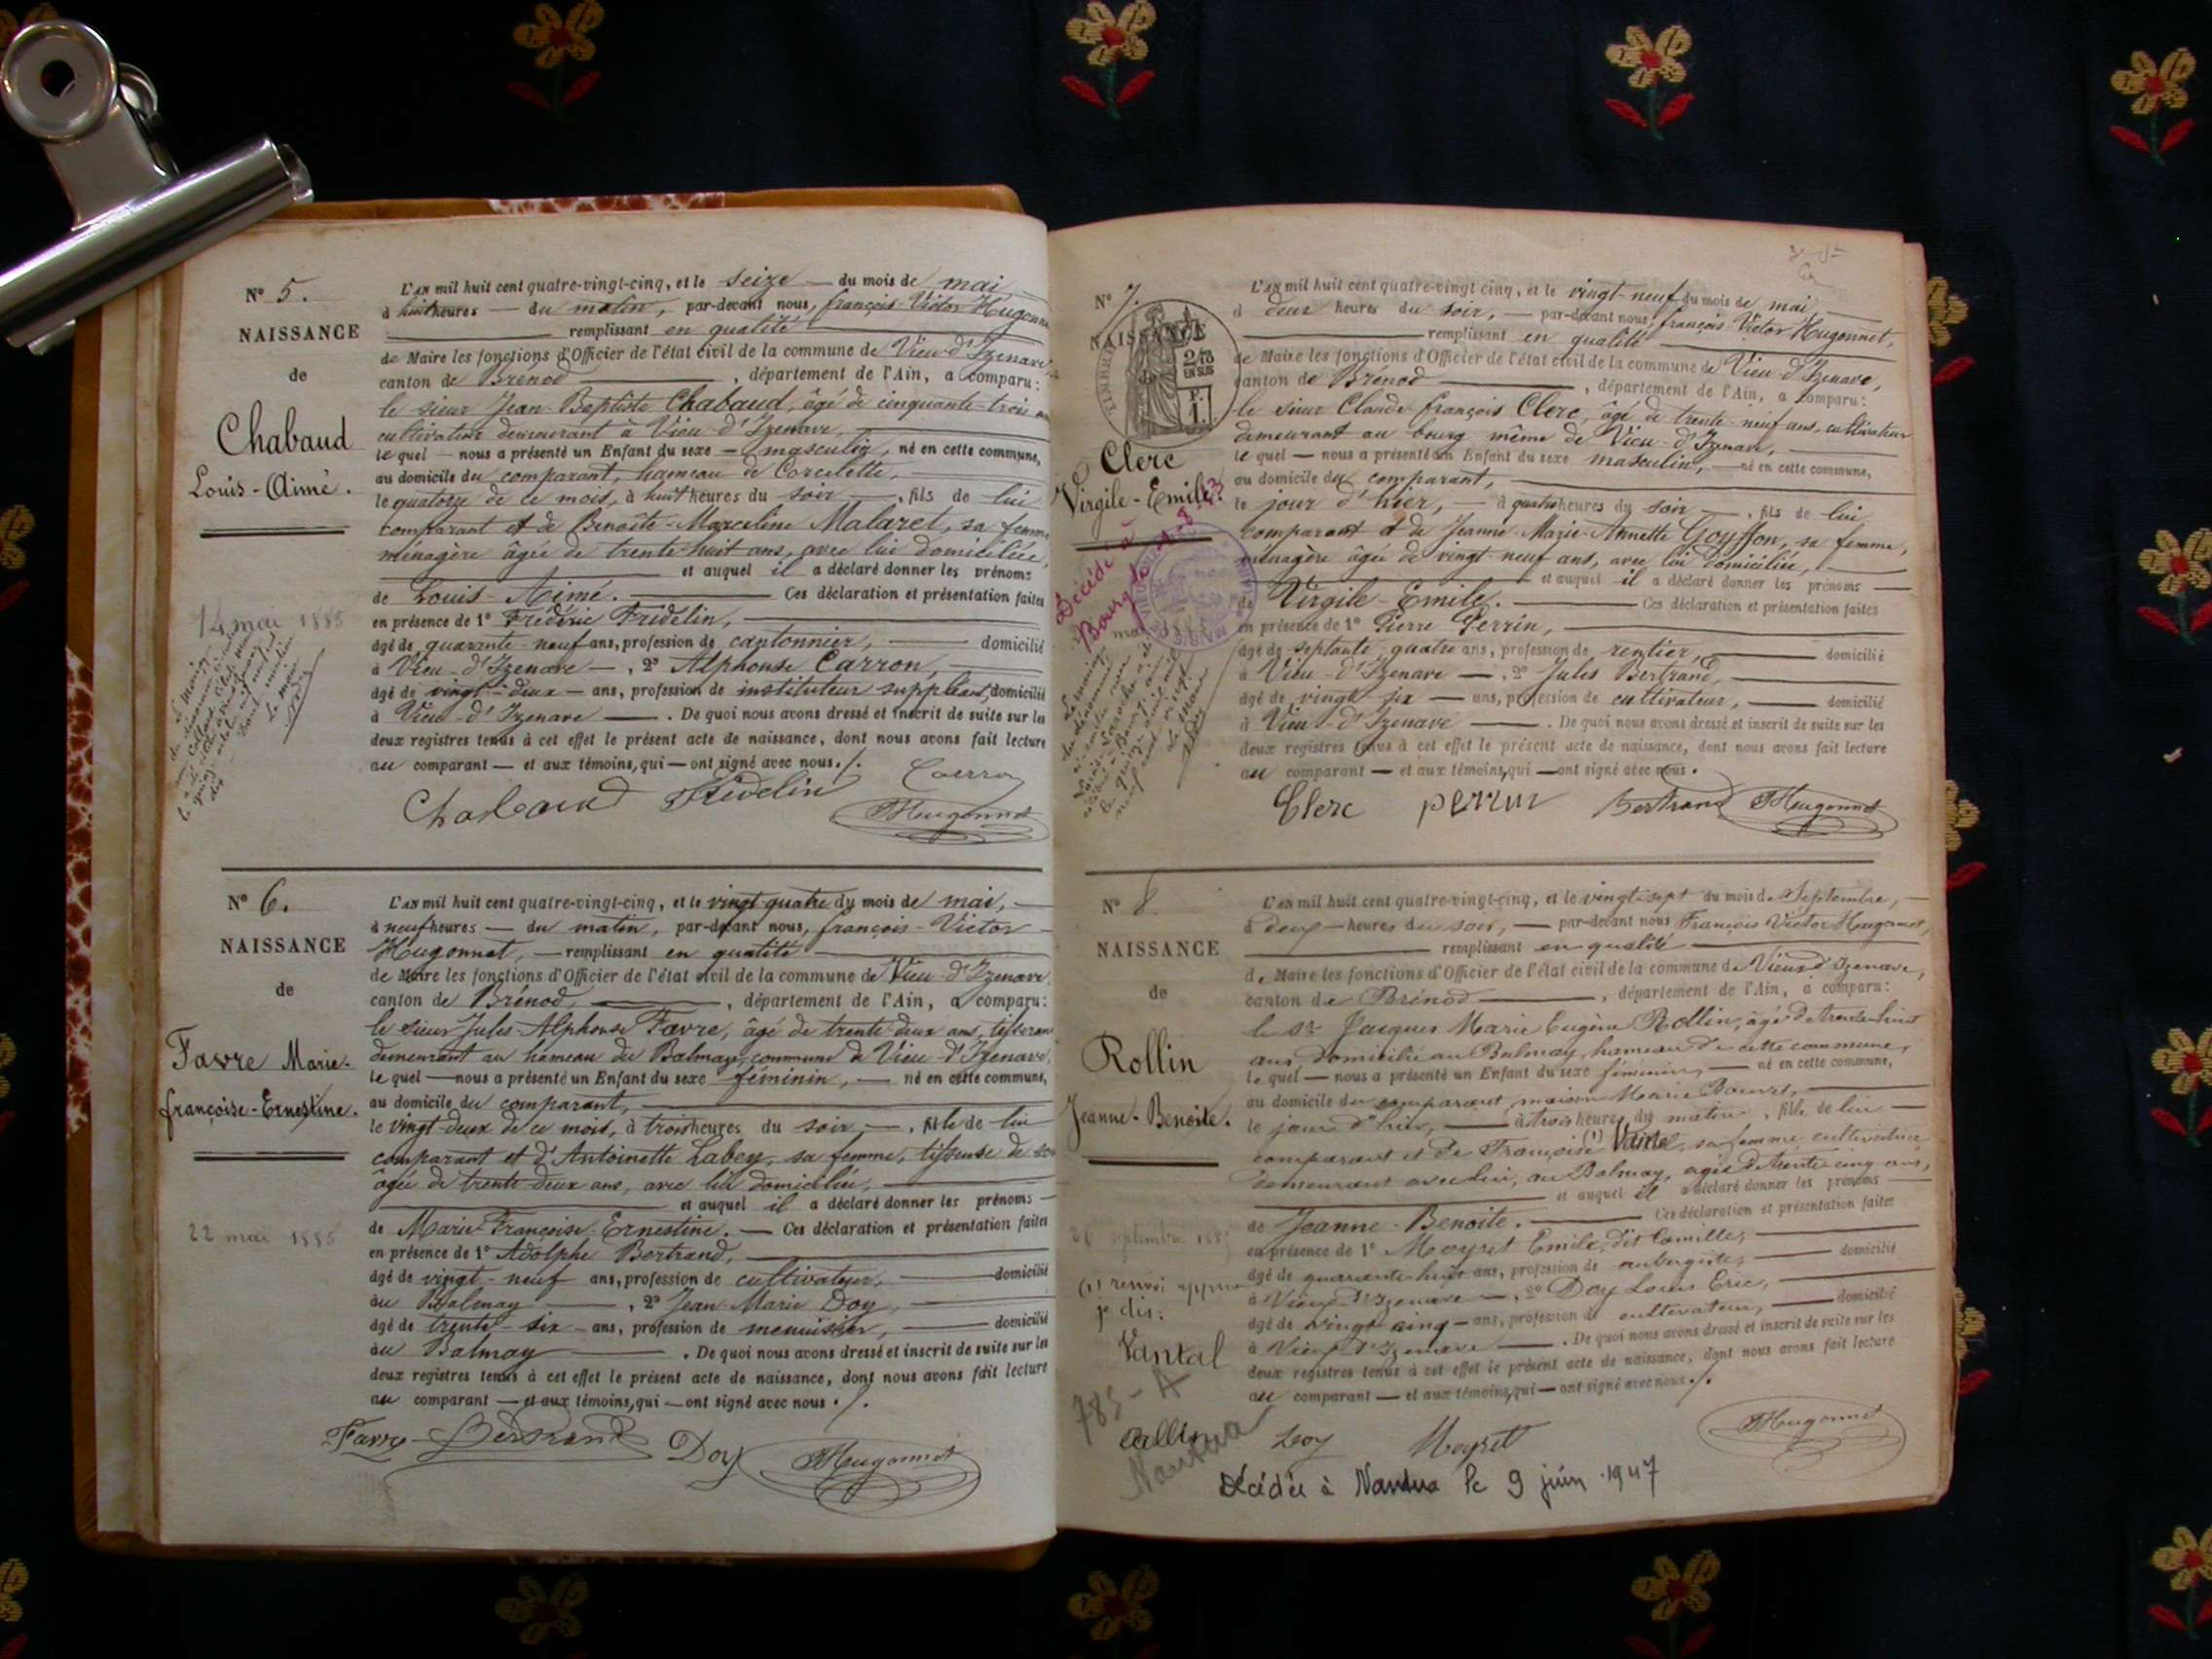 N° 5.
NAISSANCE
de
Chabaud
Louis-Aimé.
14 mai 1885
L'AN mil huit cent quatre-vingt-cinq, et le seize — du mois de mai
à huit heures — du matin, par-devant nous, françois-Victor Hugonnet
remplissant en qualité
de Maire les fonctions d'Officier de l'état civil de la commune de Vieu-d'Izenave,
canton de Brénod —, département de l'Ain, a comparu:
le sieur Jean-Baptiste Chabaud, âgé de cinquante-trois ans
cultivateur demeurant à Vieu-d'Izenave,
lequel — nous a présenté un Enfant du sexe — masculin, né en cette commune,
au domicile du comparant, hameau de Corcelette,
le quatorze de ce mois, à huit heures du soir —, fils de lui
comparant et de Benoîte-Marceline Malaret, sa femme
ménagère âgée de trente-huit ans, avec lui domiciliée,
et auquel il a déclaré donner les prénoms
de Louis-Aimé. — Ces déclaration et présentation faites
en présence de 1° Frédéric Fridelin,
âgé de quarante-neuf ans, profession de cantonnier, — domicilié
à Vieu-d'Izenave —, 2° Alphonse Carron,
âgé de vingt-deux — ans, profession de instituteur suppléant, domicilié
à Vieu-d'Izenave —. De quoi nous avons dressé et inscrit de suite sur les
deux registres tenus à cet effet le présent acte de naissance, dont nous avons fait lecture
au comparant — et aux témoins, qui — ont signé avec nous./.
Chabaud Fridelin Carron
Hugonnet
N° 6.
NAISSANCE
de
Favre Marie-
françoise-Ernestine.
22 mai 1885
L'AN mil huit cent quatre-vingt-cinq, et le vingt quatre du mois de mai,
à neuf heures — du matin, par-devant nous, françois-Victor
Hugonnet, — remplissant en qualité
de Maire les fonctions d'Officier de l'état civil de la commune de Vieu-d'Izenave
canton de Brénod, —, département de l'Ain, a comparu:
le sieur Jules-Alphonse Favre, âgé de trente-deux ans, tisseran
demeurant au hameau du Balmay, commune de Vieu-d'Izenave,
lequel — nous a présenté un Enfant du sexe féminin, — né en cette commune,
au domicile du comparant,
le vingt-deux de ce mois, à trois heures du soir, —, fille de lui
comparant et d'Antoinette Labey, sa femme, tisseuse de soie
âgée de trente-deux ans, avec lui domiciliée,
et auquel il a déclaré donner les prénoms —
de Marie-Françoise-Ernestine. — Ces déclaration et présentation faites
en présence de 1° Adolphe Bertrand,
âgé de vingt-neuf ans, profession de cultivateur, — domicilié
au Balmay —, 2° Jean-Marie Doy,
âgé de trente-six — ans, profession de menuisier, — domicilié
au Balmay —. De quoi nous avons dressé et inscrit de suite sur les
deux registres tenus à cet effet le présent acte de naissance, dont nous avons fait lecture
au comparant — et aux témoins, qui — ont signé avec nous./.
Favre Bertrand Doy Hugonnet
N° 7.
NAISSANCE
de
Clerc
Virgile-Emile.
Décédé à
Bourg le
L'AN mil huit cent quatre-vingt cinq, et le vingt-neuf du mois de mai
à deux heures du soir, — par-devant nous, françois-Victor Hugonnet,
remplissant en qualité
de Maire les fonctions d'Officier de l'état civil de la commune de Vieu-d'Izenave,
canton de Brénod —, département de l'Ain, a comparu:
le sieur Claude-françois Clerc, âgé de trente-neuf ans, cultivateur
demeurant au bourg même de Vieu-d'Izenave,
lequel — nous a présenté un Enfant du sexe masculin, — né en cette commune,
au domicile du comparant,
le jour d'hier, — à quatre heures du soir —, fils de lui
comparant et de Jeanne-Marie-Annette Goyffon, sa femme,
ménagère âgée de vingt-neuf ans, avec lui domiciliée,
et auquel il a déclaré donner les prénoms —
de Virgile-Emile. — Ces déclaration et présentation faites
en présence de 1° Pierre Perrin,
âgé de septante-quatre ans, profession de rentier, — domicilié
à Vieu-d'Izenave —, 2° Jules Bertrand,
âgé de vingt-six — ans, profession de cultivateur, — domicilié
à Vieu-d'Izenave —. De quoi nous avons dressé et inscrit de suite sur les
deux registres tenus à cet effet le présent acte de naissance, dont nous avons fait lecture
au comparant — et aux témoins, qui — ont signé avec nous.
Clerc perrin Bertrand Hugonnet
N° 8.
NAISSANCE
de
Rollin
Jeanne-Benoite.
26 septembre 1885
(1) renvoi approuvé
je dis:
Vantal
785-A
Nantua
L'AN mil huit cent quatre-vingt-cinq, et le vingt sept du mois de Septembre,
à deux — heures du soir, — par-devant nous François Victor Hugonnet,
remplissant en qualité
de Maire les fonctions d'Officier de l'état civil de la commune de Vieu d'Izenave,
canton de Brénod —, département de l'Ain, a comparu:
le Sr Jacques Marie Eugène Rollin, âgé de trente-huit
ans, domicilié au Balmay, hameau de cette commune,
lequel — nous a présenté un Enfant du sexe féminin, — né en cette commune,
au domicile du comparant, maison Marie
le jour d'hier, — à trois heures du matin, fille de lui —
comparant et de Françoise (1) Vantal, sa femme cultivatrice
demeurant avec lui, au Balmay, âgée de trente-cinq ans,
et auquel il a déclaré donner les prénoms
de Jeanne-Benoite. — Ces déclaration et présentation faites
en présence de 1° Meyret Emile, dit Camille,
âgé de quarante-huit ans, profession de aubergiste, — domicilié
à Vieu d'Izenave —, 2° Doy Louis Eric,
âgé de vingt-cinq — ans, profession de cultivateur, — domicilié
à Vieu d'Izenave —. De quoi nous avons dressé et inscrit de suite sur les
deux registres tenus à cet effet le présent acte de naissance, dont nous avons fait lecture
au comparant — et aux témoins, qui — ont signé avec nous./.
Doy Meyret Hugonnet
Décédée à Nantua le 9 juin 1947